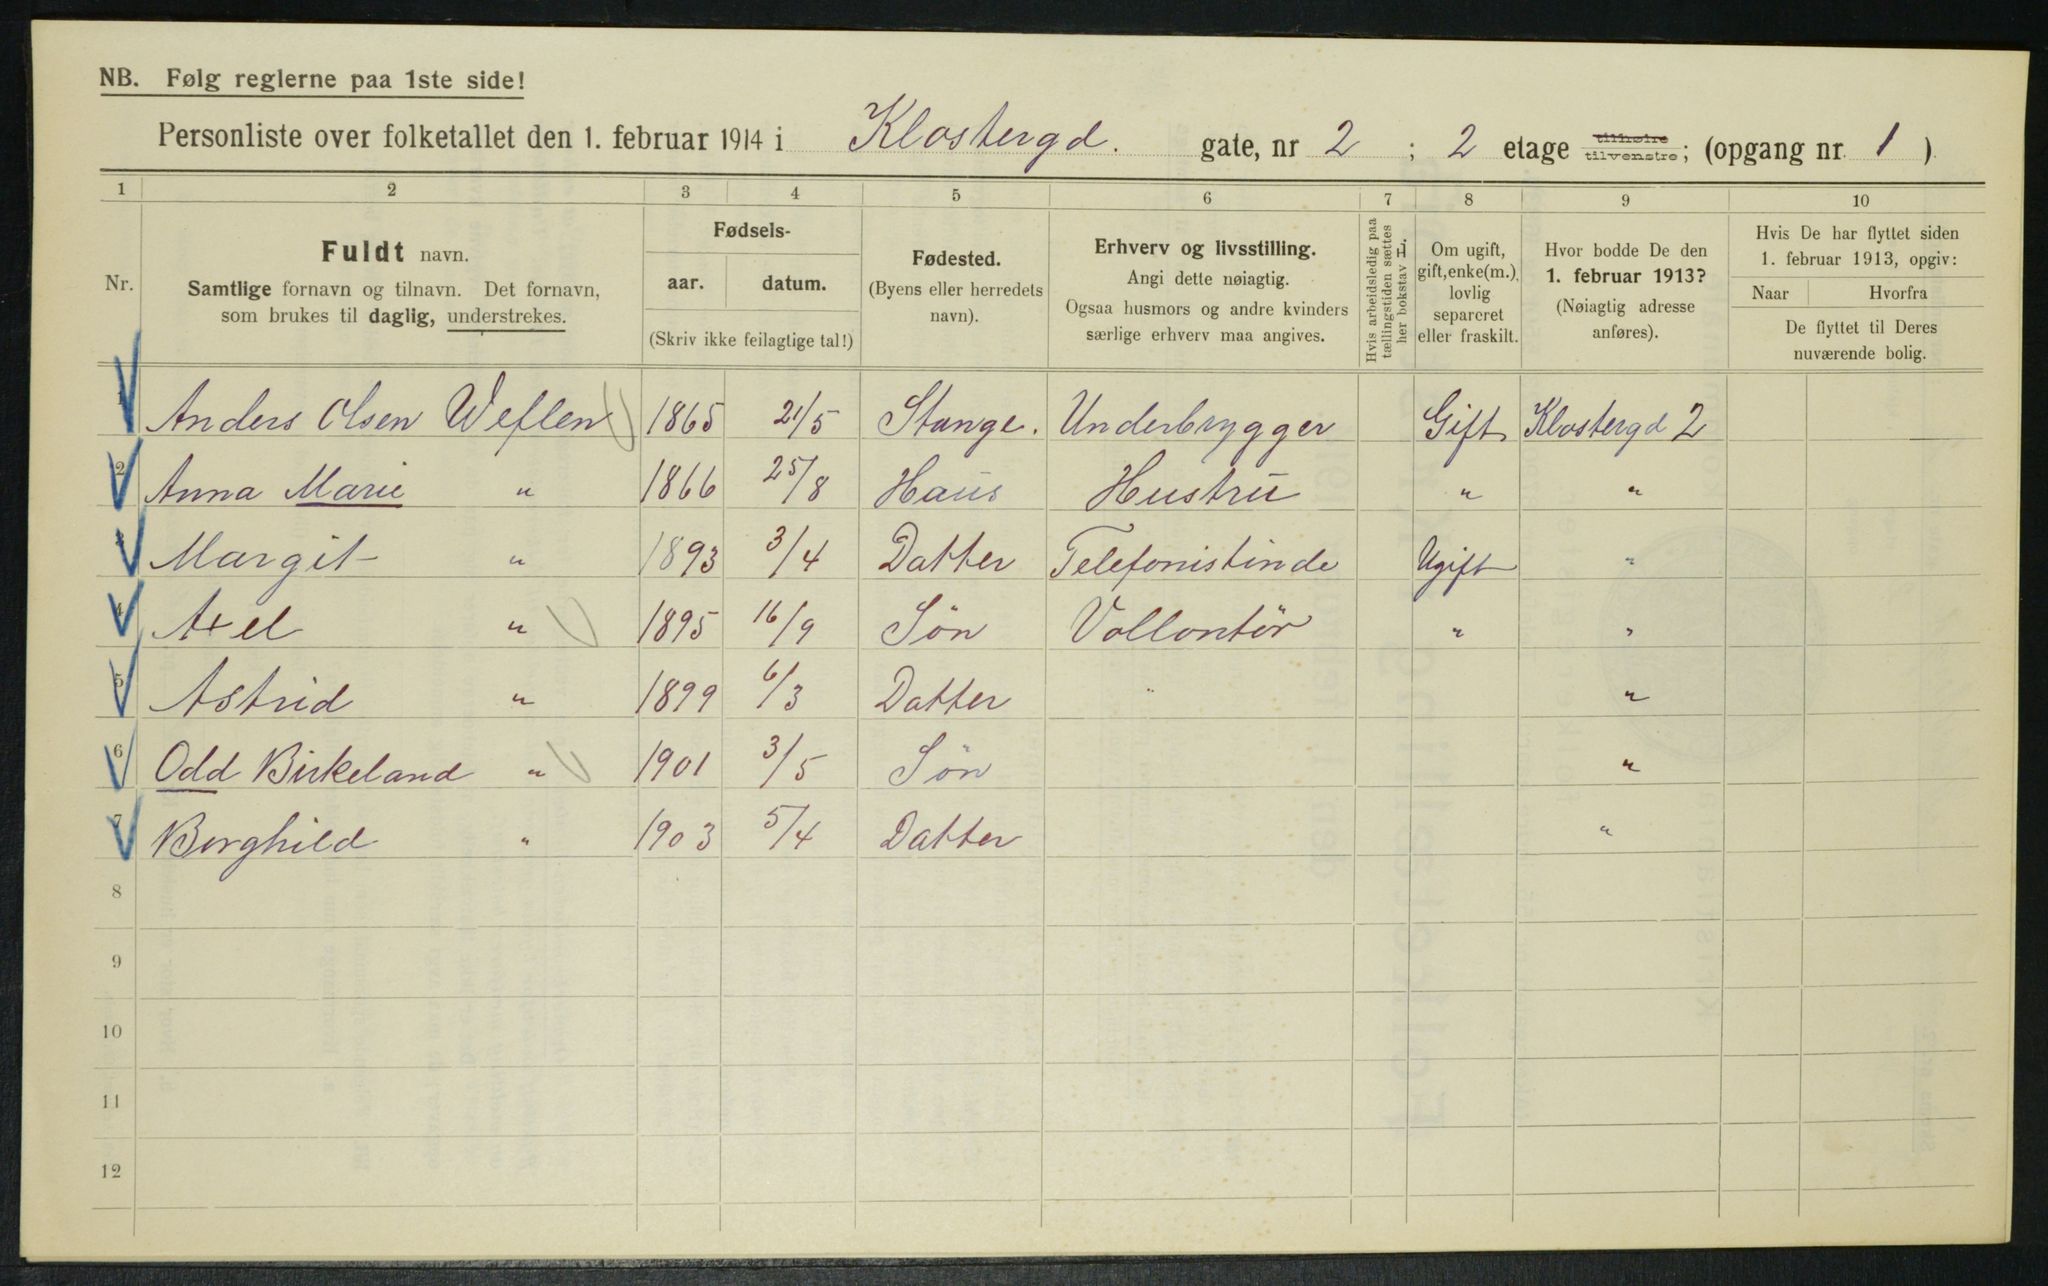 NB. Følg reglerne paa 1ste side!
Personliste over folketallet den 1. februar 1914 i Klostergd. gate, nr 2 ; 2 etage tilhøire tilvenstre; (opgang nr. 1 )
1 2 3 4 5 6 7 8 9 10
Nr.
Fuldt navn.
Samtlige fornavn og tilnavn. Det fornavn,
som brukes til daglig, understrekes.
Fødsels-
aar. datum.
(Skriv ikke feilagtige tal!)
Fødested.
(Byens eller herredets
navn).
Erhverv og livsstilling.
Angi dette nøiagtig.
Ogsaa husmors og andre kvinders
særlige erhverv maa angives.
Hvis arbeidsledig paa
tællingstiden sættes
her bokstav L
Om ugift,
gift, enke(m.),
lovlig
separeret
eller fraskilt.
Hvor bodde De den
1. februar 1913?
(Nøiagtig adresse
anføres).
Hvis De har flyttet siden
1. februar 1913, opgiv:
Naar Hvorfra
De flyttet til Deres
nuværende bolig.
1 Anders Olsen Weflen 1865 21/5 Stange. Underbrygger Gift Klostergd 2
2 Anna Marie " 1866 25/8 Haus Hustru " "
3 Margit " 1893 3/4 Datter Telefonistinde Ugift "
4 Axel " 1895 16/9 Søn Vollontør " "
5 Astrid " 1899 6/3 Datter " "
6 Odd Birkeland " 1901 3/5 Søn "
7 Borghild " 1903 5/4 Datter "
8
9
10
11
12